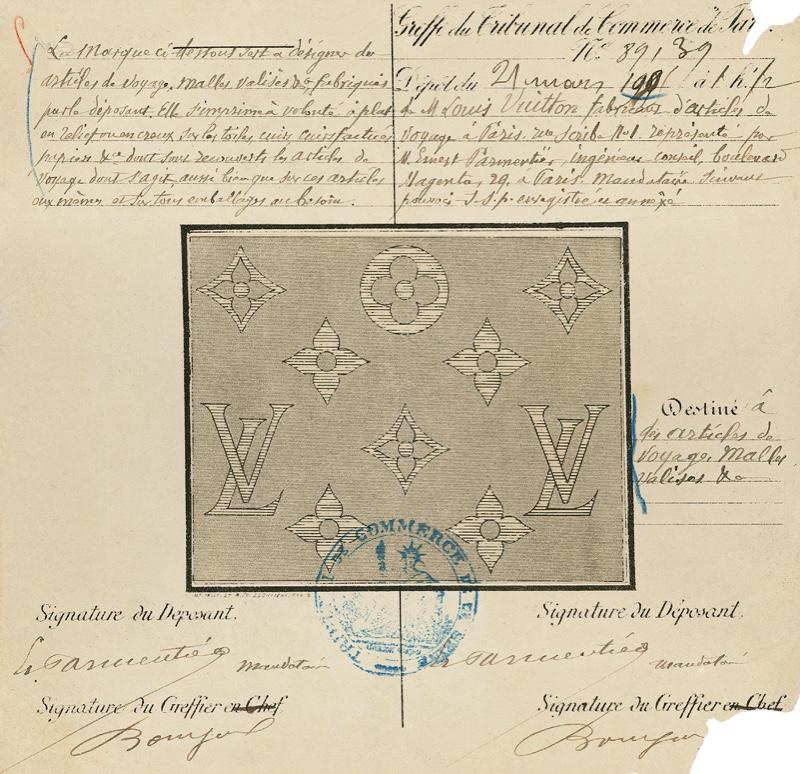 Greffe du Tribunal de Commerce de Par
No 89,39
Dépôt du 21 mars à 1 h 1/2
de M Louis Vuitton fabricant d'articles de
voyage à Paris rue Scribe No 1. représenté par
M. Ernest Parmentier, ingénieur conseil, boulevard
Magenta, 29, à Paris. Mandataire suivant
pouvoir S.S.p. enregistré et annexé
La Marque ci-dessous sert à désigner des
articles de voyage, malles valises &a fabriqués
par le déposant. Elle s'imprime à volonté à plat
en relief ou en creux sur les toiles, cuirs, cuirs factices
papiers &ca dont sont recouverts les articles de
voyage dont s'agit, aussi bien que sur ces articles
eux mêmes et sur tous emballages au besoin.
LV
LV
Destiné à
des articles de
voyage, Malles
valises &a
TRIBUNAL DE COMMERCE DE LA SEINE
Signature du Déposant.
E. Parmentier mandataire
Signature du Greffier en Chef
Signature du Déposant.
E. Parmentier mandataire
Signature du Greffier en Chef